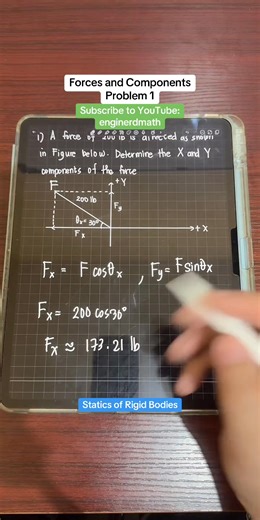 Forces and Components
Problem 1
Subscribe to YouTube:
enginerdmath
1) A force of 200 lb is directed as shown
in Figure below. Determine the X and Y
components of the force
F
+Y
200 lb
Fy
θx = 30°
Fx
+X
Fx = F cosθx , Fy = F sinθx
Fx = 200 cos30°
Fx ≈ 173.21 lb
Statics of Rigid Bodies